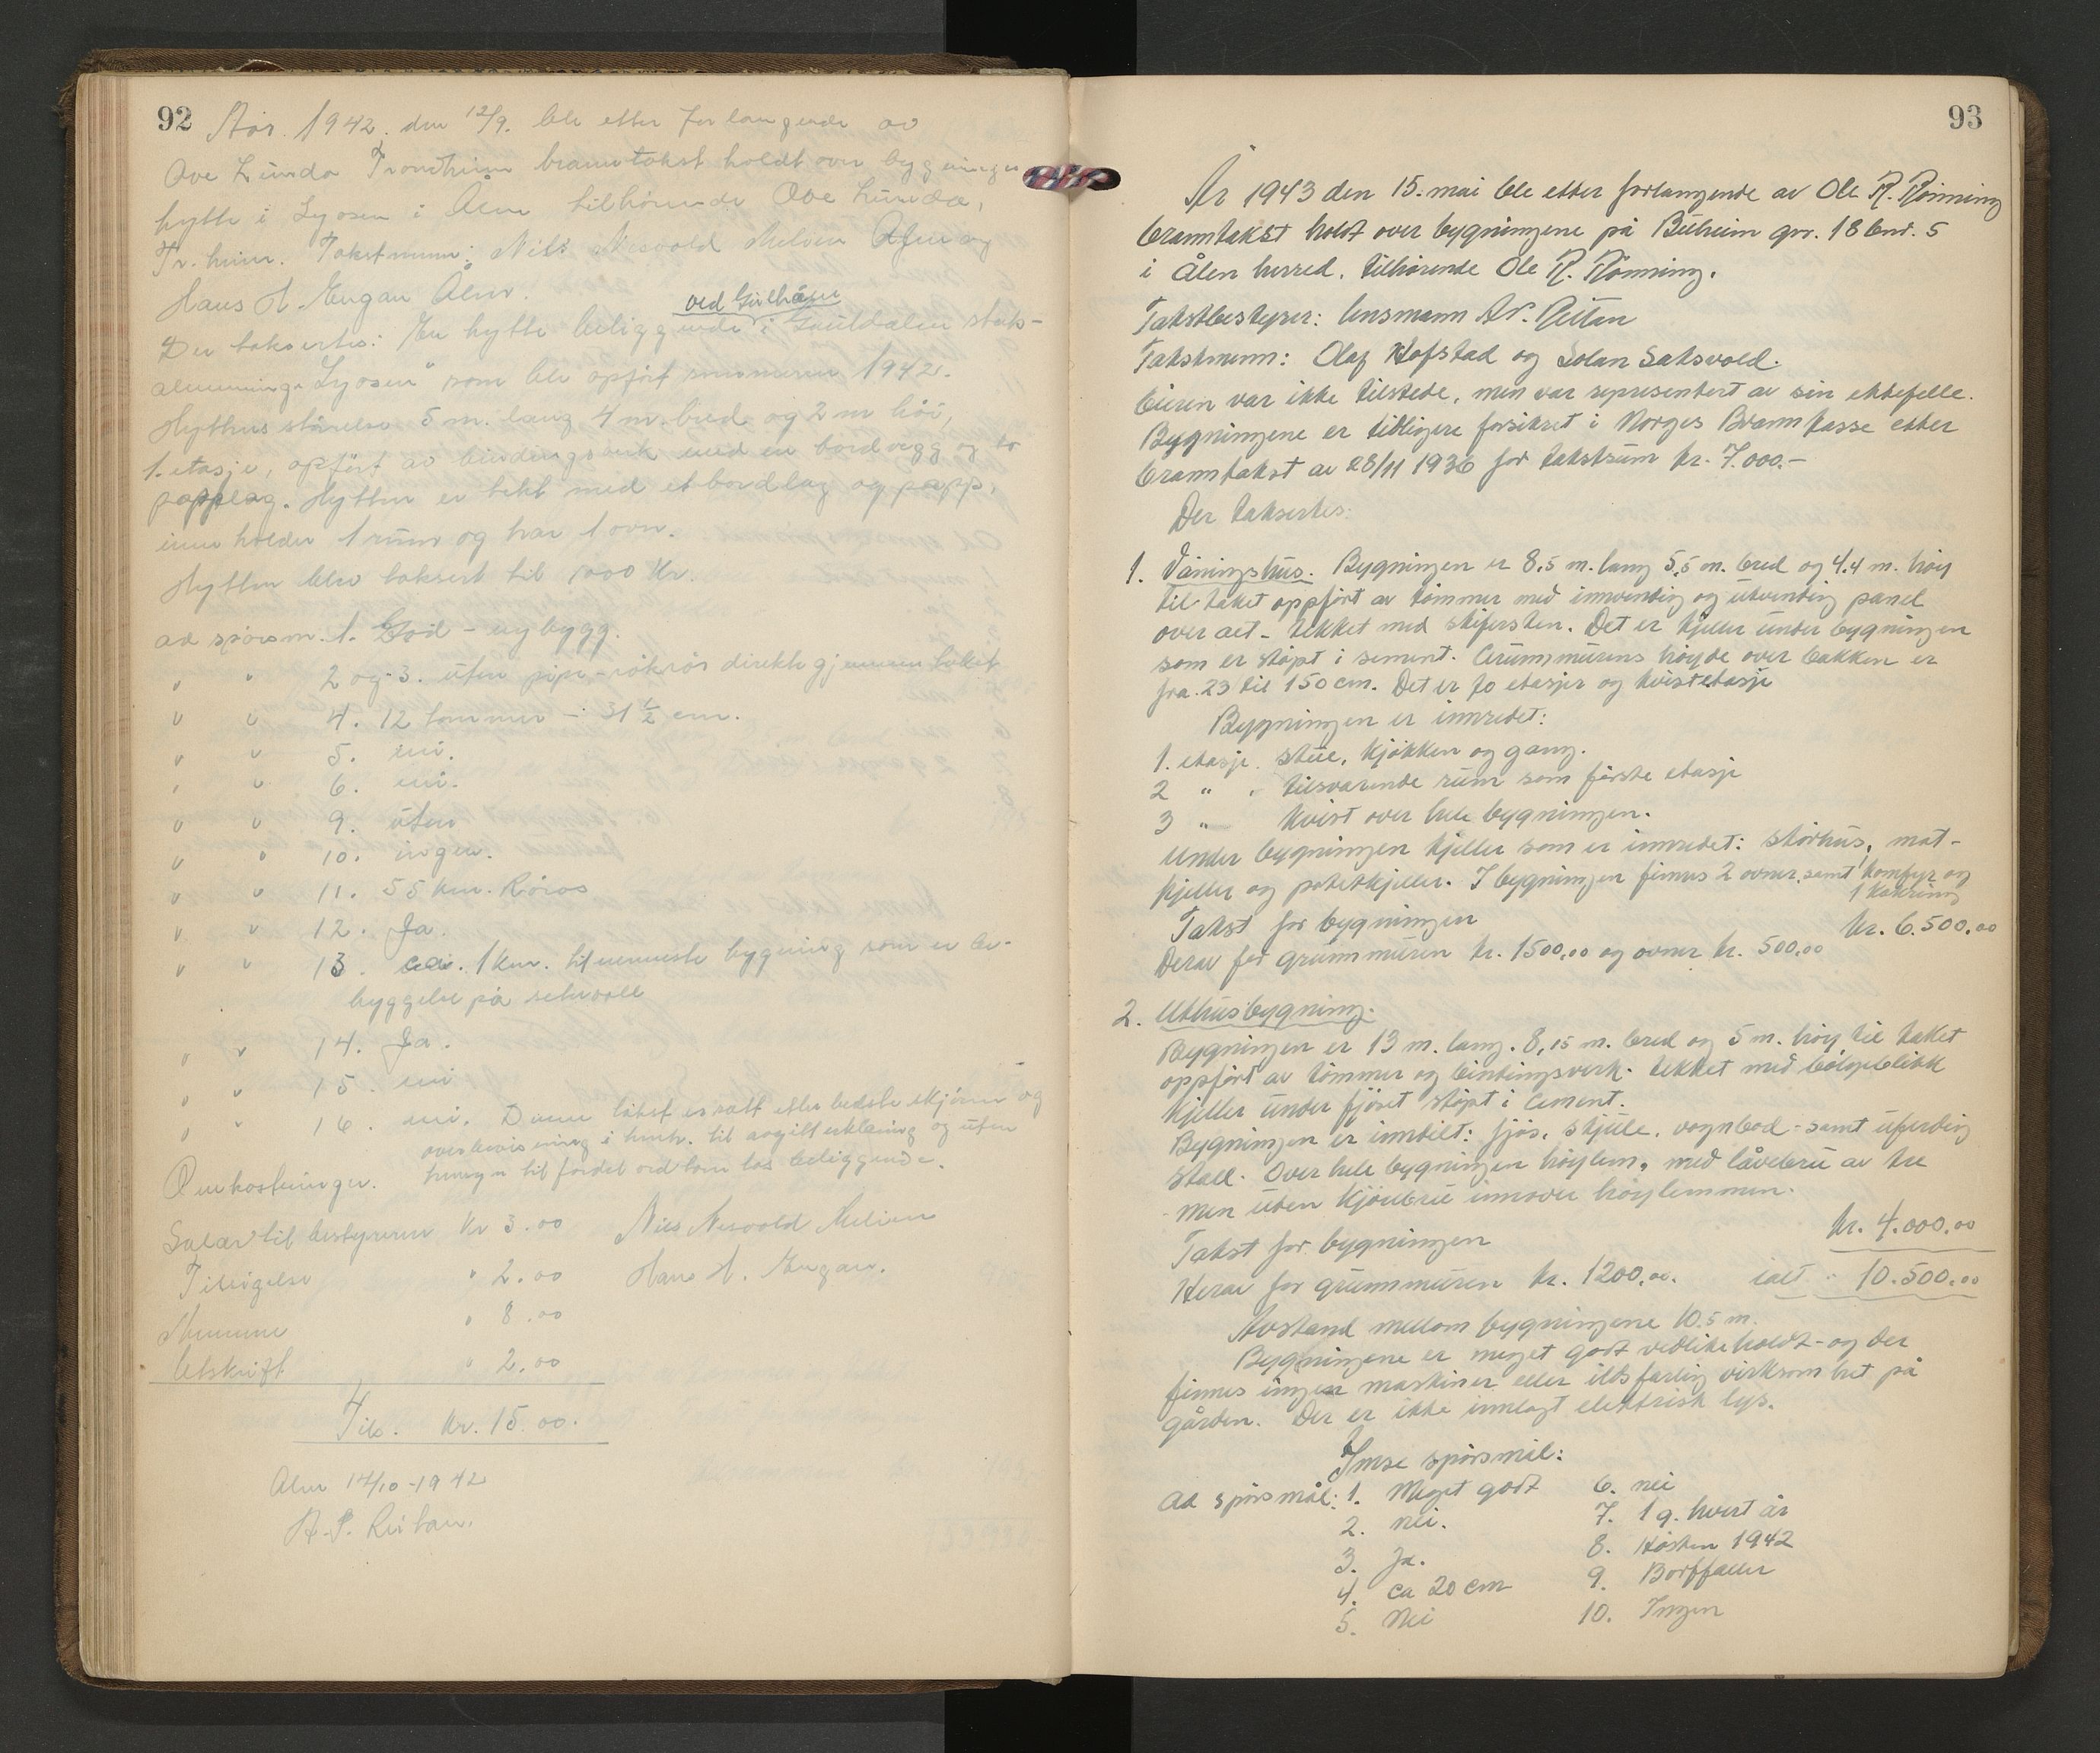 92
Aar. 1942. den 12/9. ble etter forlangende av
Ove Lunda Trondheim branntakst holdt over bygninger
hytte i Lyosen i Ålen tilhörende Ove Lunda,
Tr.heim. Takstmenn: Nils Nesvold Melien Ålen og
Hans H. Engan Ålen.
ved Gülhåen
Der taksertes: En hytte beliggende i Gauldalen stats-
almenninge Lyosen" som ble opfört sommeren 1942.
Hyttens störelse 5 m. lang 4 m. bred og 2 m höi,
1. etasje, opfört av bindingsverk med en bordvegg og to
papplag. Hytten er tekt med et bordlag og papp,
inne holder 1 rüm og har 1 ovn.
Hytten blev taksert til 1000 Kr.
ad spörsm. 1. God - nybygg.
" " 2 og 3. üten pipe - rökrör direkte gjennem taket
" " 4. 12 tommer - 31 1/2 cm.
" " 5. nei.
" " 6. nei.
" " 9. üten
" " 10. ingen.
" " 11. 55 km. Röros
" " 12. Ja.
" " 13. ca. 1 km. til nermeste bygning som er be-
byggelse på setervoll
" " 14. Ja.
" " 15. nei
" " 16. nei. Denne takst er satt etter bedste skjönn og
overbevisning i henh. til avgitt erklæring og üten
hensyn til fordel ved tomtens beliggende.
Omkostninger.
Salær til bestyreren Kr 3.00 Nils Nesvold Melien
Tilsigelse " 2.00 Hans H. Engan.
Mennene " 8.00
Utskrift " 2.00
Tils. Kr. 15.00.
Ålen 14/10-1942
A. P. Reitan.
93
År 1943 den 15. mai ble etter forlangende av Ole R. Rönning
branntakst holdt over bygningene på Bülheim gnr. 18 bnr. 5
i Ålen herred. tilhörende Ole R. Rönning.
Takstbestyrer: lensmann
Takstmenn: Olaf Hofstad og Jolan Saksvold.
Eieren var ikke tilstede, men var representert av sin ektefelle.
Bygningene er tidligere forsikret i Norges Brannkasse etter
branntakst av 28/11 1936 for takstsüm kr. 7.000.-
Der taksertes:
1. Våningshüs. Bygningen er 8,5 m. lang 5,5 m. bred og 4.4 m. höy
til taket oppfört av tömmer med innvendig og ütvendig panel
over alt - tekket med skifersten. Det er kjeller ünder bygningen
som er stöpt i sement. Grünnmürens höyde over bakken er
fra 23 til 150 cm. Det er to etasjer og kvistetasje
Bygningen er innredet:
1. etasje. stüe, kjökken og gang.
2 " . tilsvarende rüm som förste etasje
3 " kvist over hele bygningen.
Under bygningen kjeller som er innredet: störhüs, mat-
kjeller og potetkjeller. I bygningen finnes 2 ovner, samt 1 komfyr og
1 kakering
Takst for bygningen kr. 6.500.00
Derav for grünnmüren kr. 1500,00 og ovner kr. 500.00
2. Uthüsbygning.
Bygningen er 13 m. lang. 8,15 m. bred og 5 m. höy til taket
oppfört av tömmer og bindingsverk. tekket med bölgeblikk
kjeller ünder fjöset stöpt i cement.
Bygningen er inndelt: fjös, skjüle, vognbod - samt üferdig
stall. Over hele bygningen höylem, med låvebrü av tre
men üten kjörebrü innover höylemmen.
Takst for bygningen kr. 4.000.00
Herav for grünnmüren kr. 1200.00. ialt " 10.500.00
Avstand mellom bygningene 10.5 m.
Bygningene er meget godt vedlikeholdt - og der
finnes ingen maskiner eller ildsfarlig virksomhet på
gården. Der er ikke innlagt elektrisk lys.
Imse spörsmål:
Ad spörsmål: 1. Meget godt 6. nei
2. nei. 7. 1 g. hvert år
3. Ja. 8. Hösten 1942
4. ca 20 cm 9. Bortfaller
5. Nei 10. Ingen